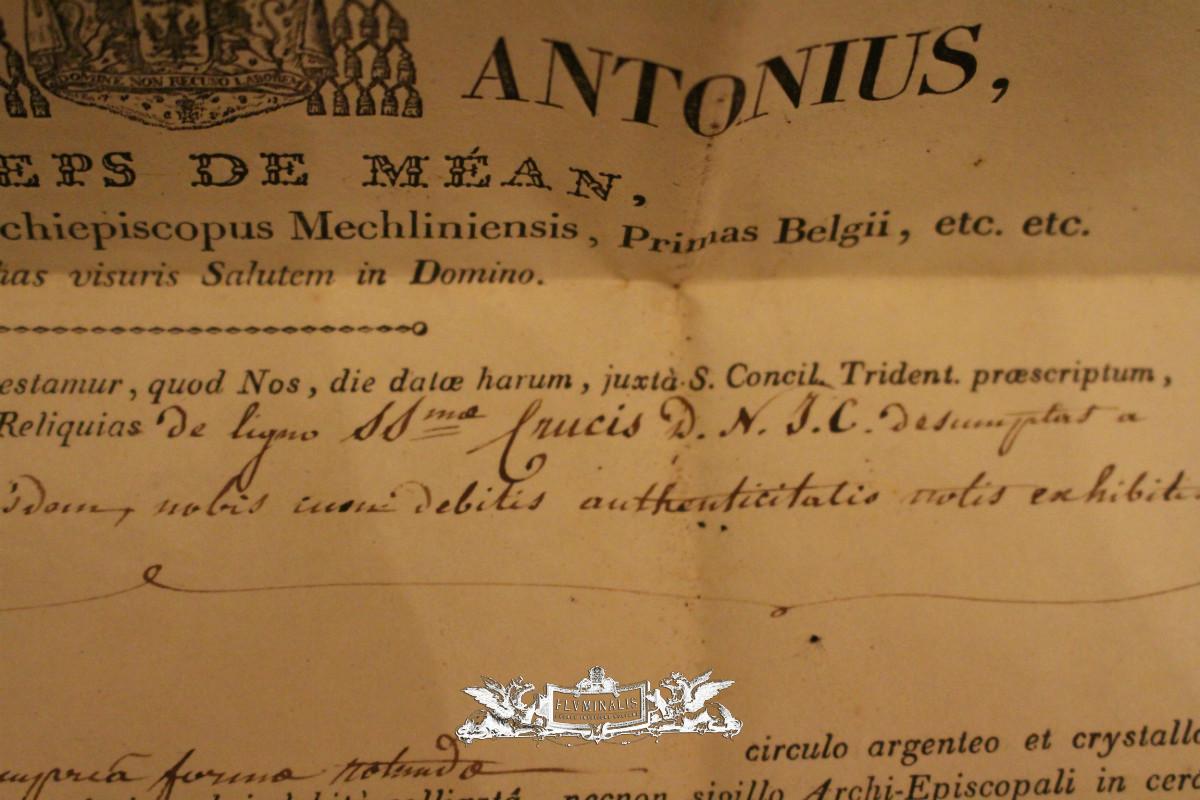 DOMINE NON RECUSO LABOREM
ANTONIUS,
EPS DE MÉAN,
chiepiscopus Mechliniensis, Primas Belgii, etc. etc.
has visuris Salutem in Domino.
estamur, quod Nos, die datæ harum, juxtà S. Concil. Trident. præscriptum,
Reliquias de ligno SS.mæ Crucis D. N. J. C. desumptas a
idem, nobis cum debitis authenticitatis notis exhibit
FLVMINALIS
formæ rotundæ
circulo argenteo et crystallo
necnon sigillo Archi-Episcopali in cer